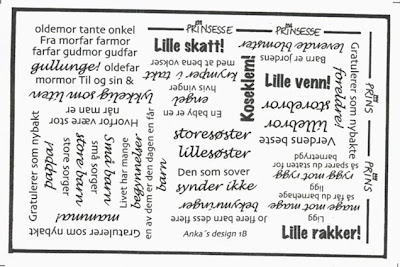 oldemor tante onkel
Fra morfar farmor
farfar gudmor gudfar
gullunge! oldefar
mormor Til og sin &
lykkelig som liten
når man er
Hvorfor være stor
Små barn
små sorger
store barn
store sorger
pappa!
Gratulerer som nybakt
mamma!
Gratulerer som nybakt
Livet har mange
begynnelser
en av dem er den dagen en får
barn
PRINSESSE
Lille skatt!
med at bena vokser
krymper i takt
hvis vinger
engel
En baby er en
storesøster
lillesøster
Den som sover
synder ikke
bekymringer
Jo flere barn dess flere
Anka´s design 1B
Koseklem!
PRINSESSE
levende blomster
Barn er jordens
Lille venn!
storebror
lillebror
Verdens beste
foreldre!
Gratulerer som nybakte
PRINS
PRINS
barnetrygd
så sparer du staten for
rygg mot rygg
Ligg
så får du barnehage
mage mot mage
Ligg
Lille rakker!